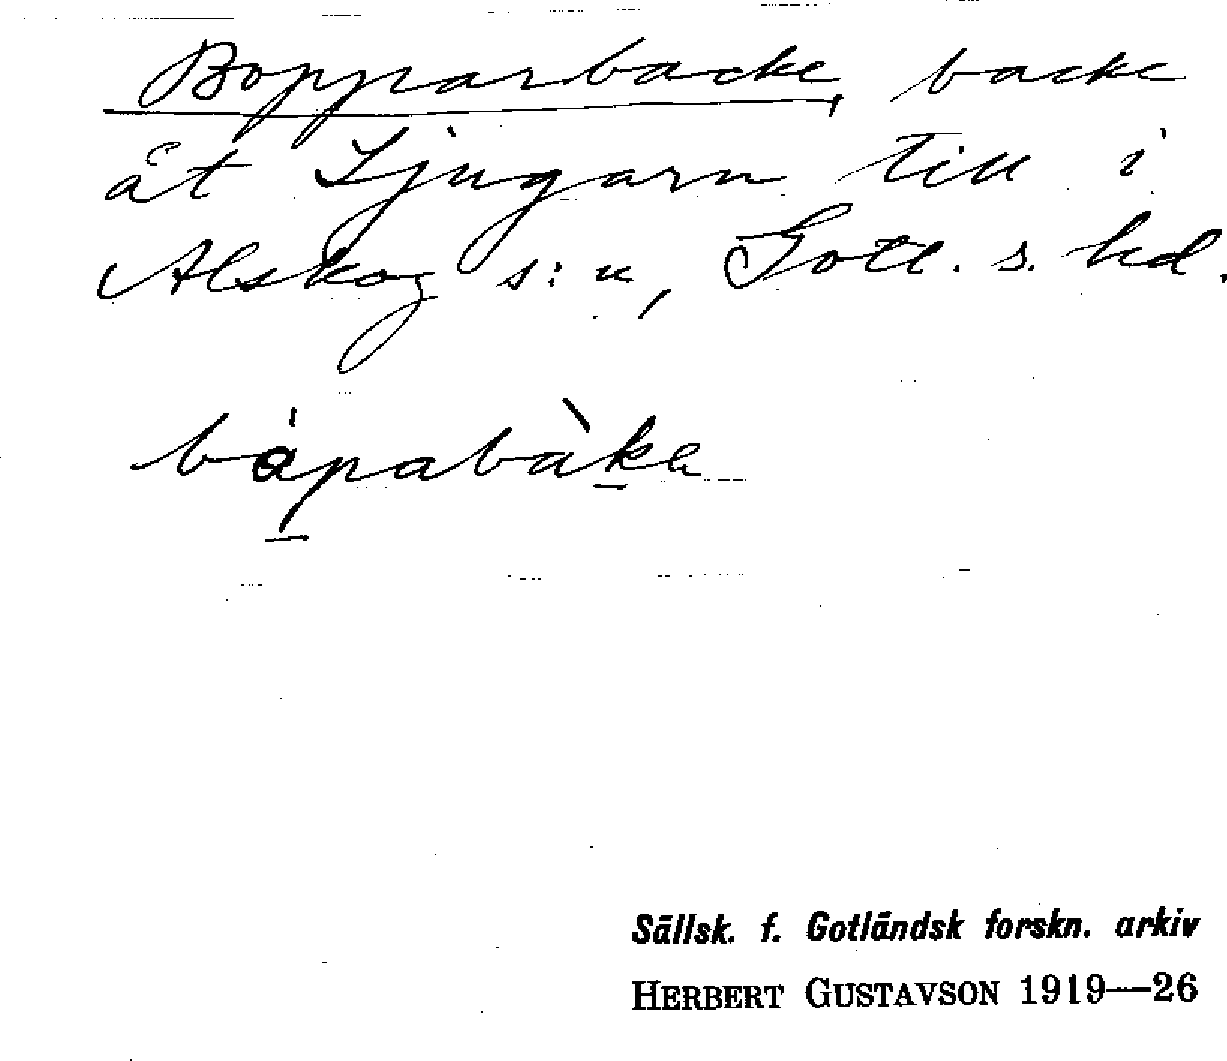 Bopparbacke, backe
åt Ljugarn till i
Alskog s:n, Gotl. s. hd.
bápabàke
Sällsk. f. Gotländsk forskn. arkiv
HERBERT GUSTAVSON 1919—26